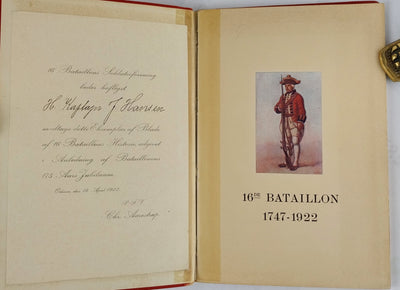 16 Bataillons Soldaterforening
beder høfligst
H. Kaptajn J. Hansen
modtage dette Eksemplar af Blade
af 16 Bataillons Historie, udgivet
i Anledning af Bataillonens
175 Aars Jubilæum.
Odense, den 18 April 1922.
P. F. V.
Chr.
16DE BATAILLON
1747-1922